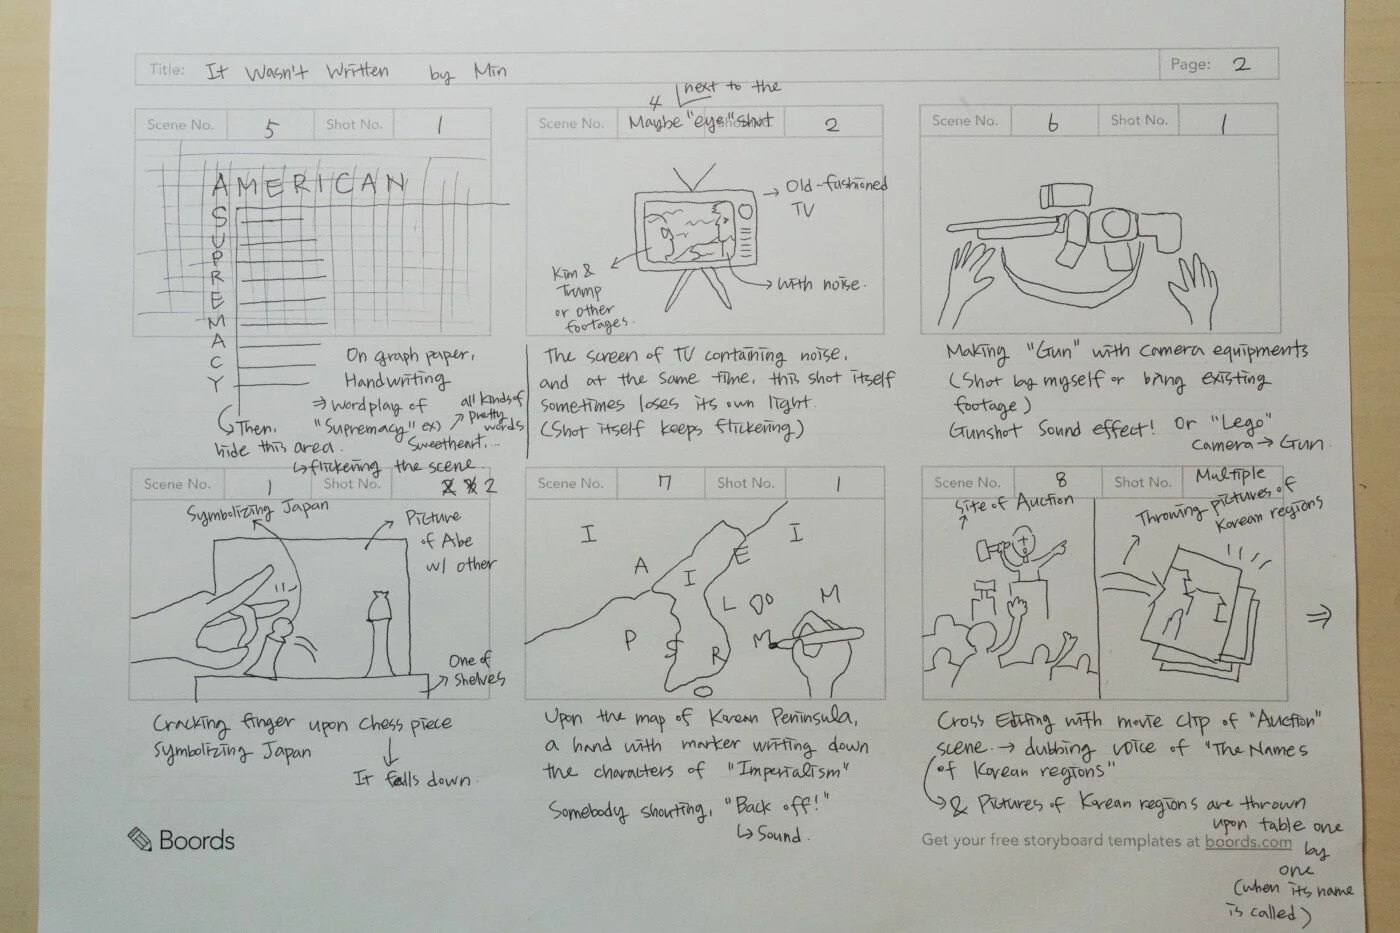 Title: It Wasn't Written by Min
Page: 2
Scene No. 5 Shot No. 1
AMERICAN
SUPREMACY
On graph paper,
Handwriting
⇒ wordplay of
"Supremacy" ex)
Sweetheart...
→ all kinds of
pretty
words
Then,
hide this area.
↳ flickering the scene.
next to the
Scene No. 4
Maybe "eye" shot
2
→ Old-fashioned
TV
Kim &
Trump
or other
footages.
→ with noise.
The screen of TV containing noise,
and at the same time, this shot itself
sometimes loses its own light.
(Shot itself keeps flickering)
Scene No. 6 Shot No. 1
Making "Gun" with camera equipments
(Shot by myself or bring existing
footage)
Gunshot Sound effect! Or "Lego"
camera → Gun.
Scene No. 1 Shot No. 2
Symbolizing Japan
Picture
of Abe
w/ other
One of
→ shelves
Cracking finger upon chess piece
symbolizing Japan
↓
It falls down.
Scene No. 7 Shot No. 1
I
I
A
I
E
L
M
P
S
R
M
Upon the map of Korean Peninsula,
a hand with marker writing down
the characters of "Imperialism"
Somebody shouting, "Back off!"
↳ Sound.
Scene No. 8 Shot No. Multiple
Site of Auction
Throwing pictures of
Korean regions
⇒
Cross Editing with movie clip of "Auction"
scene. → dubbing voice of "The Names
of Korean regions"
→ & Pictures of Korean regions are thrown
upon table one
by
one
(when its name
is called)
Boords
Get your free storyboard templates at boords.com